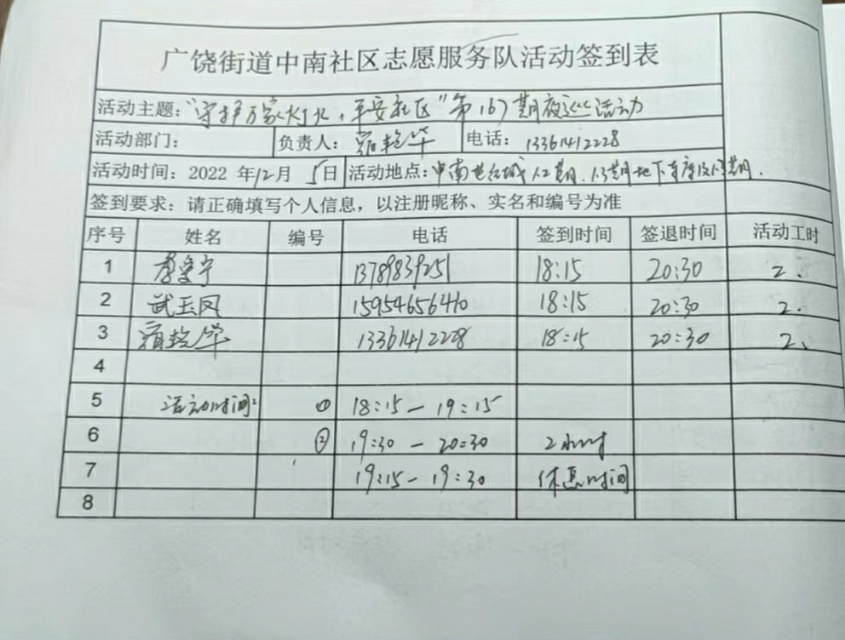 广饶街道中南社区志愿服务队活动签到表
活动主题："守护万家灯火，平安社区"第167期夜巡活动
活动部门： 负责人： 艳华 电话：13361412228
活动时间：2022年12月5日 活动地点：中南世纪城1、2期
签到要求：请正确填写个人信息，以注册昵称、实名和编号为准
序号 姓名 编号 电话 签到时间 签退时间 活动工时
1 18:15 20:30 2.
2 武玉凤 15954656410 18:15 20:30 2.
3 艳华 13361412228 18:15 20:30 2.
4
5 活动时间： ① 18:15－19:15
6 ② 19:30－20:30 2小时
7 19:15－19:30 休息时间
8